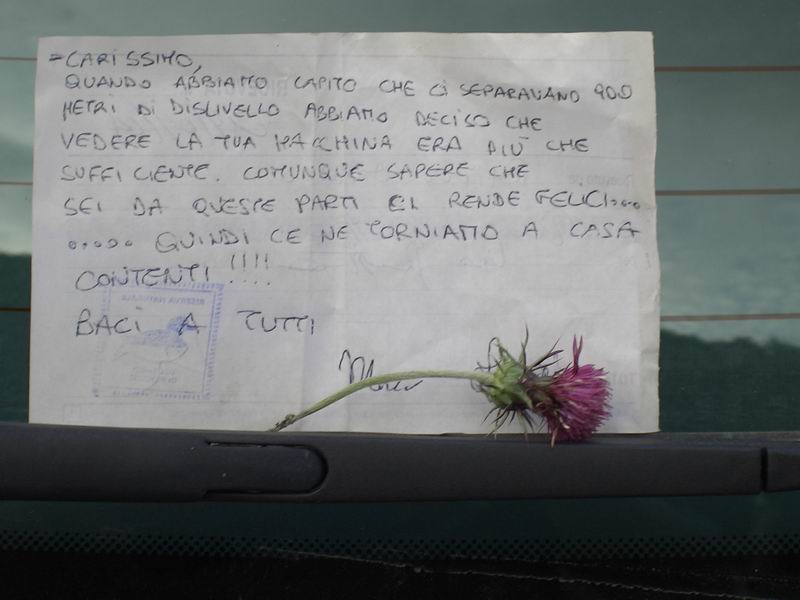 =CARISSIMO,
QUANDO ABBIAMO CAPITO CHE CI SEPARAVANO 900
METRI DI DISLIVELLO ABBIAMO DECISO CHE
VEDERE LA TUA MACCHINA ERA PIÙ CHE
SUFFICIENTE. COMUNQUE SAPERE CHE
SEI DA QUESTE PARTI CI RENDE FELICI....
..... QUINDI CE NE TORNIAMO A CASA
CONTENTI !!!!
BACI A TUTTI